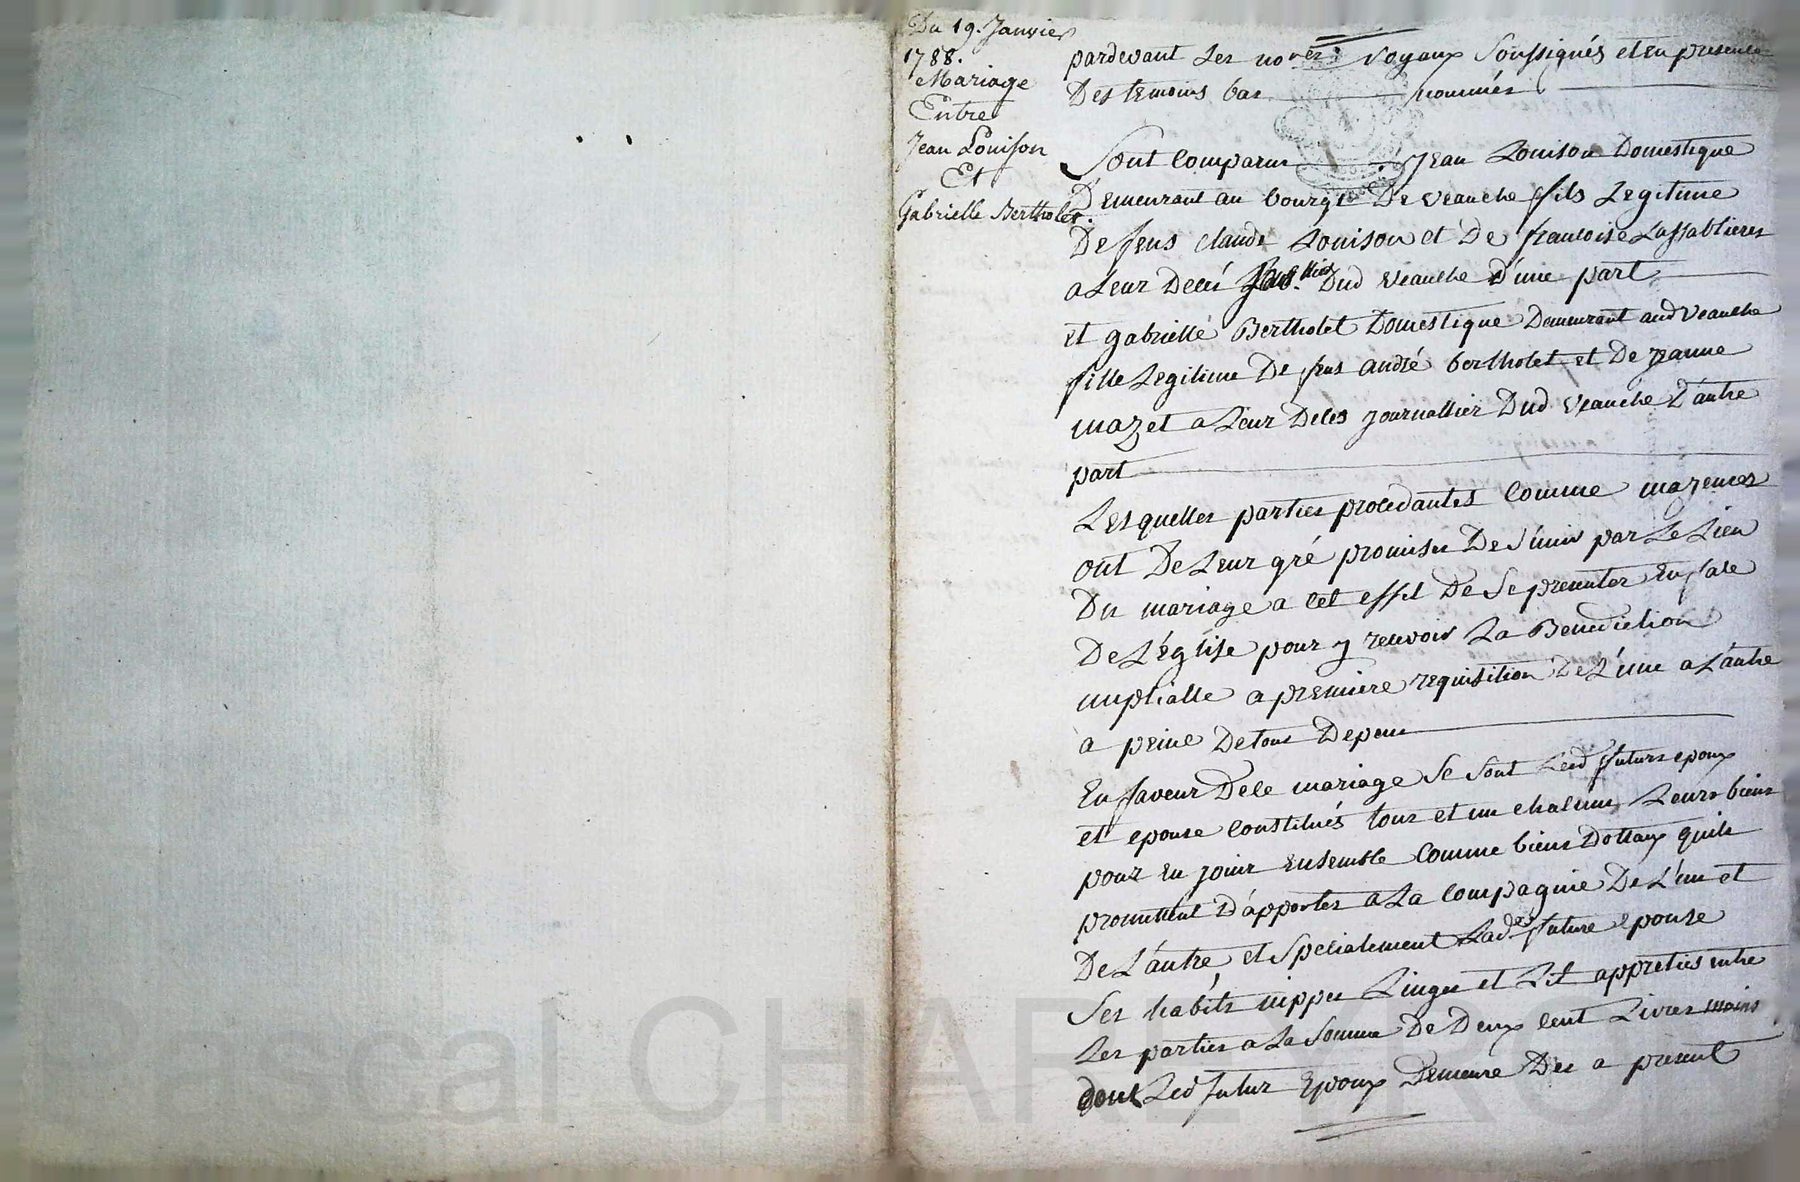 Du 19. Janvier
1788.
Mariage
Entre
Jean Louison
Et
Gabrielle Bertholet.
pardevant Les no.res Royaux Soussignés et en presence
Des temoins bas nommés
Sont Comparus Jean Louison Domestique
Demeurant au bourg De Veauche fils Legitime
De feus claude Louison et De francoise Lassablieres
a Leur Decés Dud Veauche d'une part
et gabrielle Bertholet Domestique Demeurant aud Veauche
fille Legitime De feus andré bertholet et De jeanne
mazet a Leur Decés journallier Dud Veauche D'autre
part
Lesquelles parties procedantes Comme majeures
ont De Leur gré promises De S'unir par Le Lien
Du mariage a cet effet De Se presenter En face
De L'église pour y recevoir La Benediction
nuptialle a premiere requisition De L'une a L'autre
a peine De tous Depens
En faveur De ce mariage Se Sont Lesd futurs epoux
et epouse Constitués tous et un chacuns Leurs biens
pour En jouir Ensemble Comme biens Dottaux quils
promettent D'apporter a La Compagnie De L'un et
De L'autre et Specialement Lad. future epouse
Ses habits nippes Linges et Lit appretiés entre
Les parties a La Somme De Deux Cent Livres moins
dont Led futur Epoux Demeure Des a present
Pascal CHAREYRON